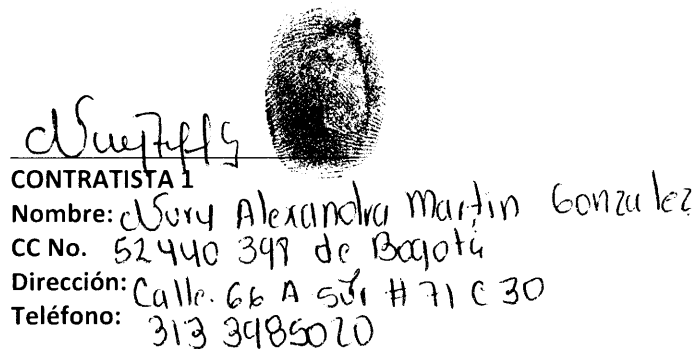 CONTRATISTA 1
Nombre: Nury Alexandra Martin Gonzalez
CC No. 52440 398 de Bogotá
Dirección: Calle. 66 A Sur # 71 C 30
Teléfono: 313 3985020